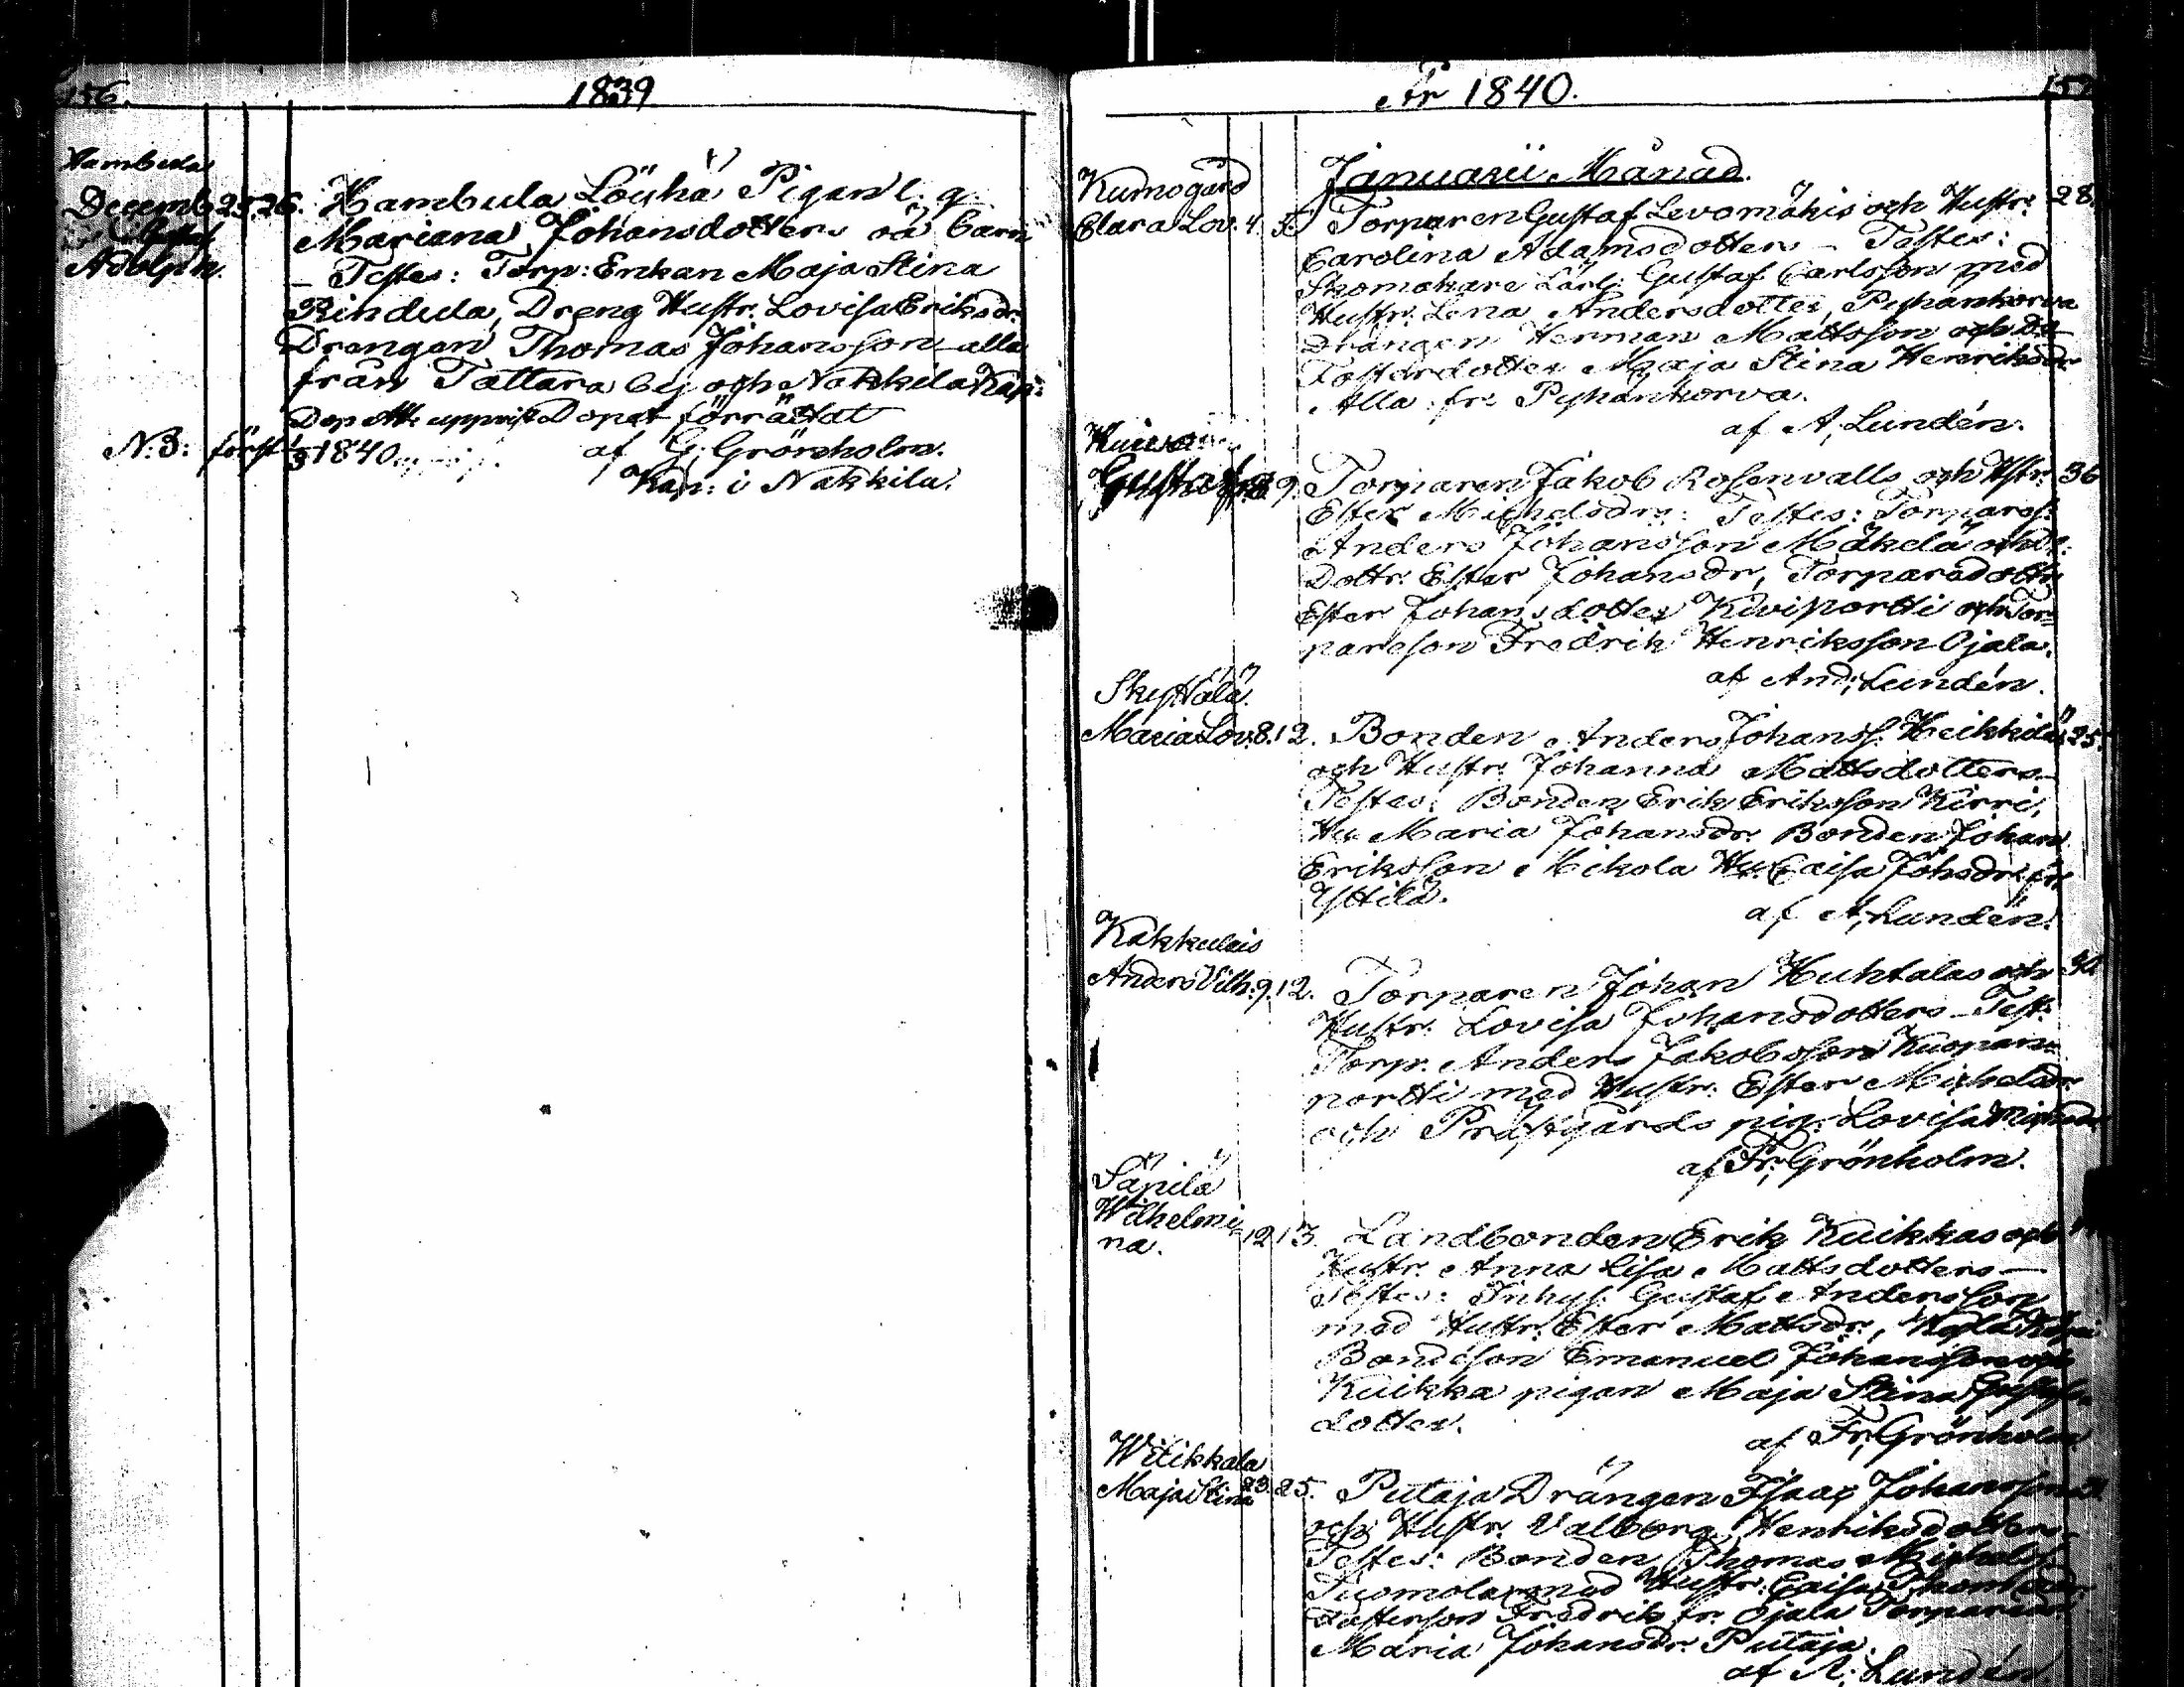 156.
1839
Hambula
Decemb. 25. 26. Hambula Löyhä Pigan l. q.
Mariana Johansdotters oä barn
Adolph.
– Testes: Torp: Enkan Maja Stina
Rindula, Dreng Hustr. Lovisa Eriksdr.
Drengen Thomas Johansson – alla
från Tattara by och Nakkila Kap:
Dopet förrättat
N.B: först 1840.
af G. Grönholm.
Kap: i Nakkila.
År 1840.
Januarii Månad.
Kumogård
Clara Lov. 4. 5. Torparen Gustaf Levomäkis och Hustr: 28.
Carolina Adamsdotters – Testes:
Skomakare Lärl: Gustaf Carlsson med
Hustr. Lena Andersdotter, Pyhänkorva
Drängen Herman Mattsson och
Fosterdotter Maja Stina Henriksdr
Alla fr: Pyhänkorva.
af A. Lundén.
Gustaf 8. 9. Torparen Jakob Rosenvalls och Hstr: 36
Ester Michelsdrs: Testes: Torpars:
Anders Johansson Mäkelä och
Dottr. Ester Johansdr, Torparedottr
Ester Johansdotter Kiviportti och Tor=
pareson Fredrik Henriksson Ojala.
af And: Lundén.
Skyttälä.
Maria Lov. 8. 12. Bonden Anders Johanss. Heikkilä 25.
och Hustr. Johanna Mattsdotters –
Testes: Bonden Erik Eriksson Kirri,
Hu Maria Johansdr. Bonden Johan
Eriksson Mikola Hu Caisa Johsdr fr
Yttilä.
af A. Lundén.
Kakkulais
Anders Vilh. 9. 12. Torparen Johan Huhtalas och 30
Hustr. Lovisa Johansdotters – Test:
Torp. Anders Jakobsson Kuopan=
portti med Hustr. Ester Michelsdr.
och Prästgårds pig. Lovisa
af Fr. Grönholm.
Säpilä
Wilhelmi=
na. 12. 13. Landbonden Erik Kuikkas och
Hustr. Anna Lisa Mattsdotters –
Testes: Inhys: Gustaf Andersson
med Hustr. Ester Mattsdr,
Bondeson Emanuel Johansson och
Kuikka pigan Maja Stina Gustafs
dotter.
af Fr. Grönholm
Witikkala
Maja Stina 23. 25. Putaja Drängen Isaac Johanssons
och Hustr. Valborg Henriksdotters.
Testes: Bonden Thomas Michelss
Tuomola med Hustr. Caisa Thomasdr
Fredrik fr. Ojala Torparedr
Maria Johansdr. Putaja.
af A. Lundén